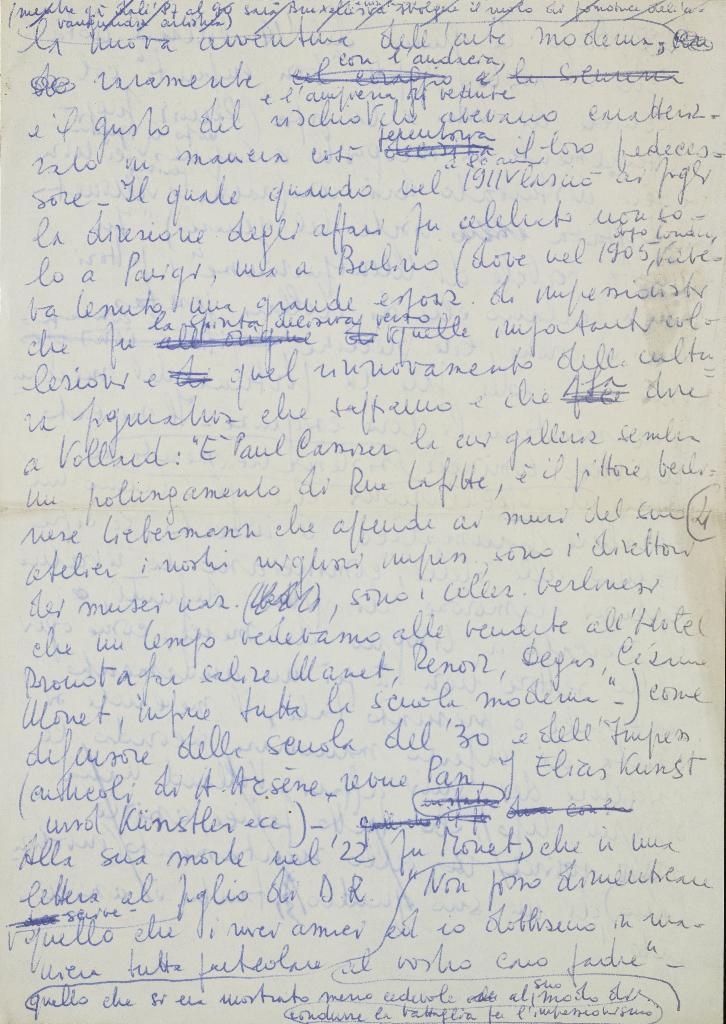 (mentre qui dall'87 al 90 sarà Bruxelles a svolgere il ruolo di
avanguardia artistica)
la nuova avventura dell'arte moderna,
raramente con l'audacia,
e l'ampiezza di vedute
e il gusto del rischio che avevano caratteriz-
zato in maniera così perentoria il loro predeces-
sore - Il quale quando nel 1911 lasciò ai figli
la direzione degli affari fu celebrato non so-
lo a Parigi, ma a Berlino (dove nel 1905,
va tenuto una grande esposiz. di impressionisti
che fu la spinta decisiva verso quelle importanti col-
lezioni e quel rinnovamento della cultu-
ra figurativa che sappiamo e che fa dire
a Vollard: "È Paul Cassirer la cui galleria sembra
un prolungamento di Rue Lafitte, è il pittore berli-
nese Liebermann che appende ai muri del suo
4
atelier i nostri migliori impress., sono i direttori
dei musei naz., sono i collez. berlinesi
che un tempo vedevamo alle vendite all'Hotel
Drouot a far salire Manet, Renoir, Degas, Cézanne
Monet, infine tutta la scuola moderna" -) come
difensore della scuola del '30 e dell'Impress.
(articoli di A. Arsène, revue Pan, J Elias Kunst
und Künstler ecc) -
Alla sua morte nel '22 fu Monet, che in una
lettera al figlio di D R
scrive - "Non posso dimenticare
quello che i miei amici ed io dobbiamo in ma-
niera tutta particolare al vostro caro padre" -
quello che si era mostrato meno cedevole al suo modo di
condurre la battaglia per l'impressionismo)